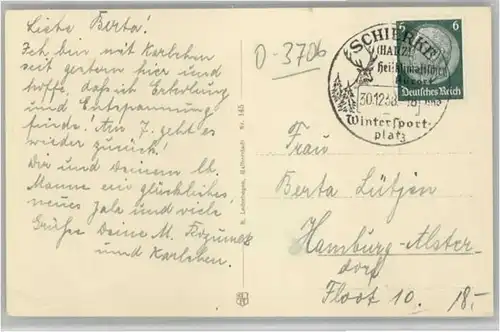 Liebe Berta!
Ich bin mit Karlchen
seit gestern hier und
hoffe, daß ich Erholung
und Entspannung
finde! Am 7. geht es
wieder zurück!
Dir und Deinem lb.
Manne ein glückliches,
neues Jahr und viele
Grüße Deine M.
und Karlchen.
O-3706
Nr. 145
SCHIERKE
(HARZ)
Heilklimatischer
Kurort
30.12.38.
Wintersport-
platz
6 6
Deutsches Reich
Frau
Berta Lütjen
Hamburg-Alster-
dorf
Floot 10.
18.-